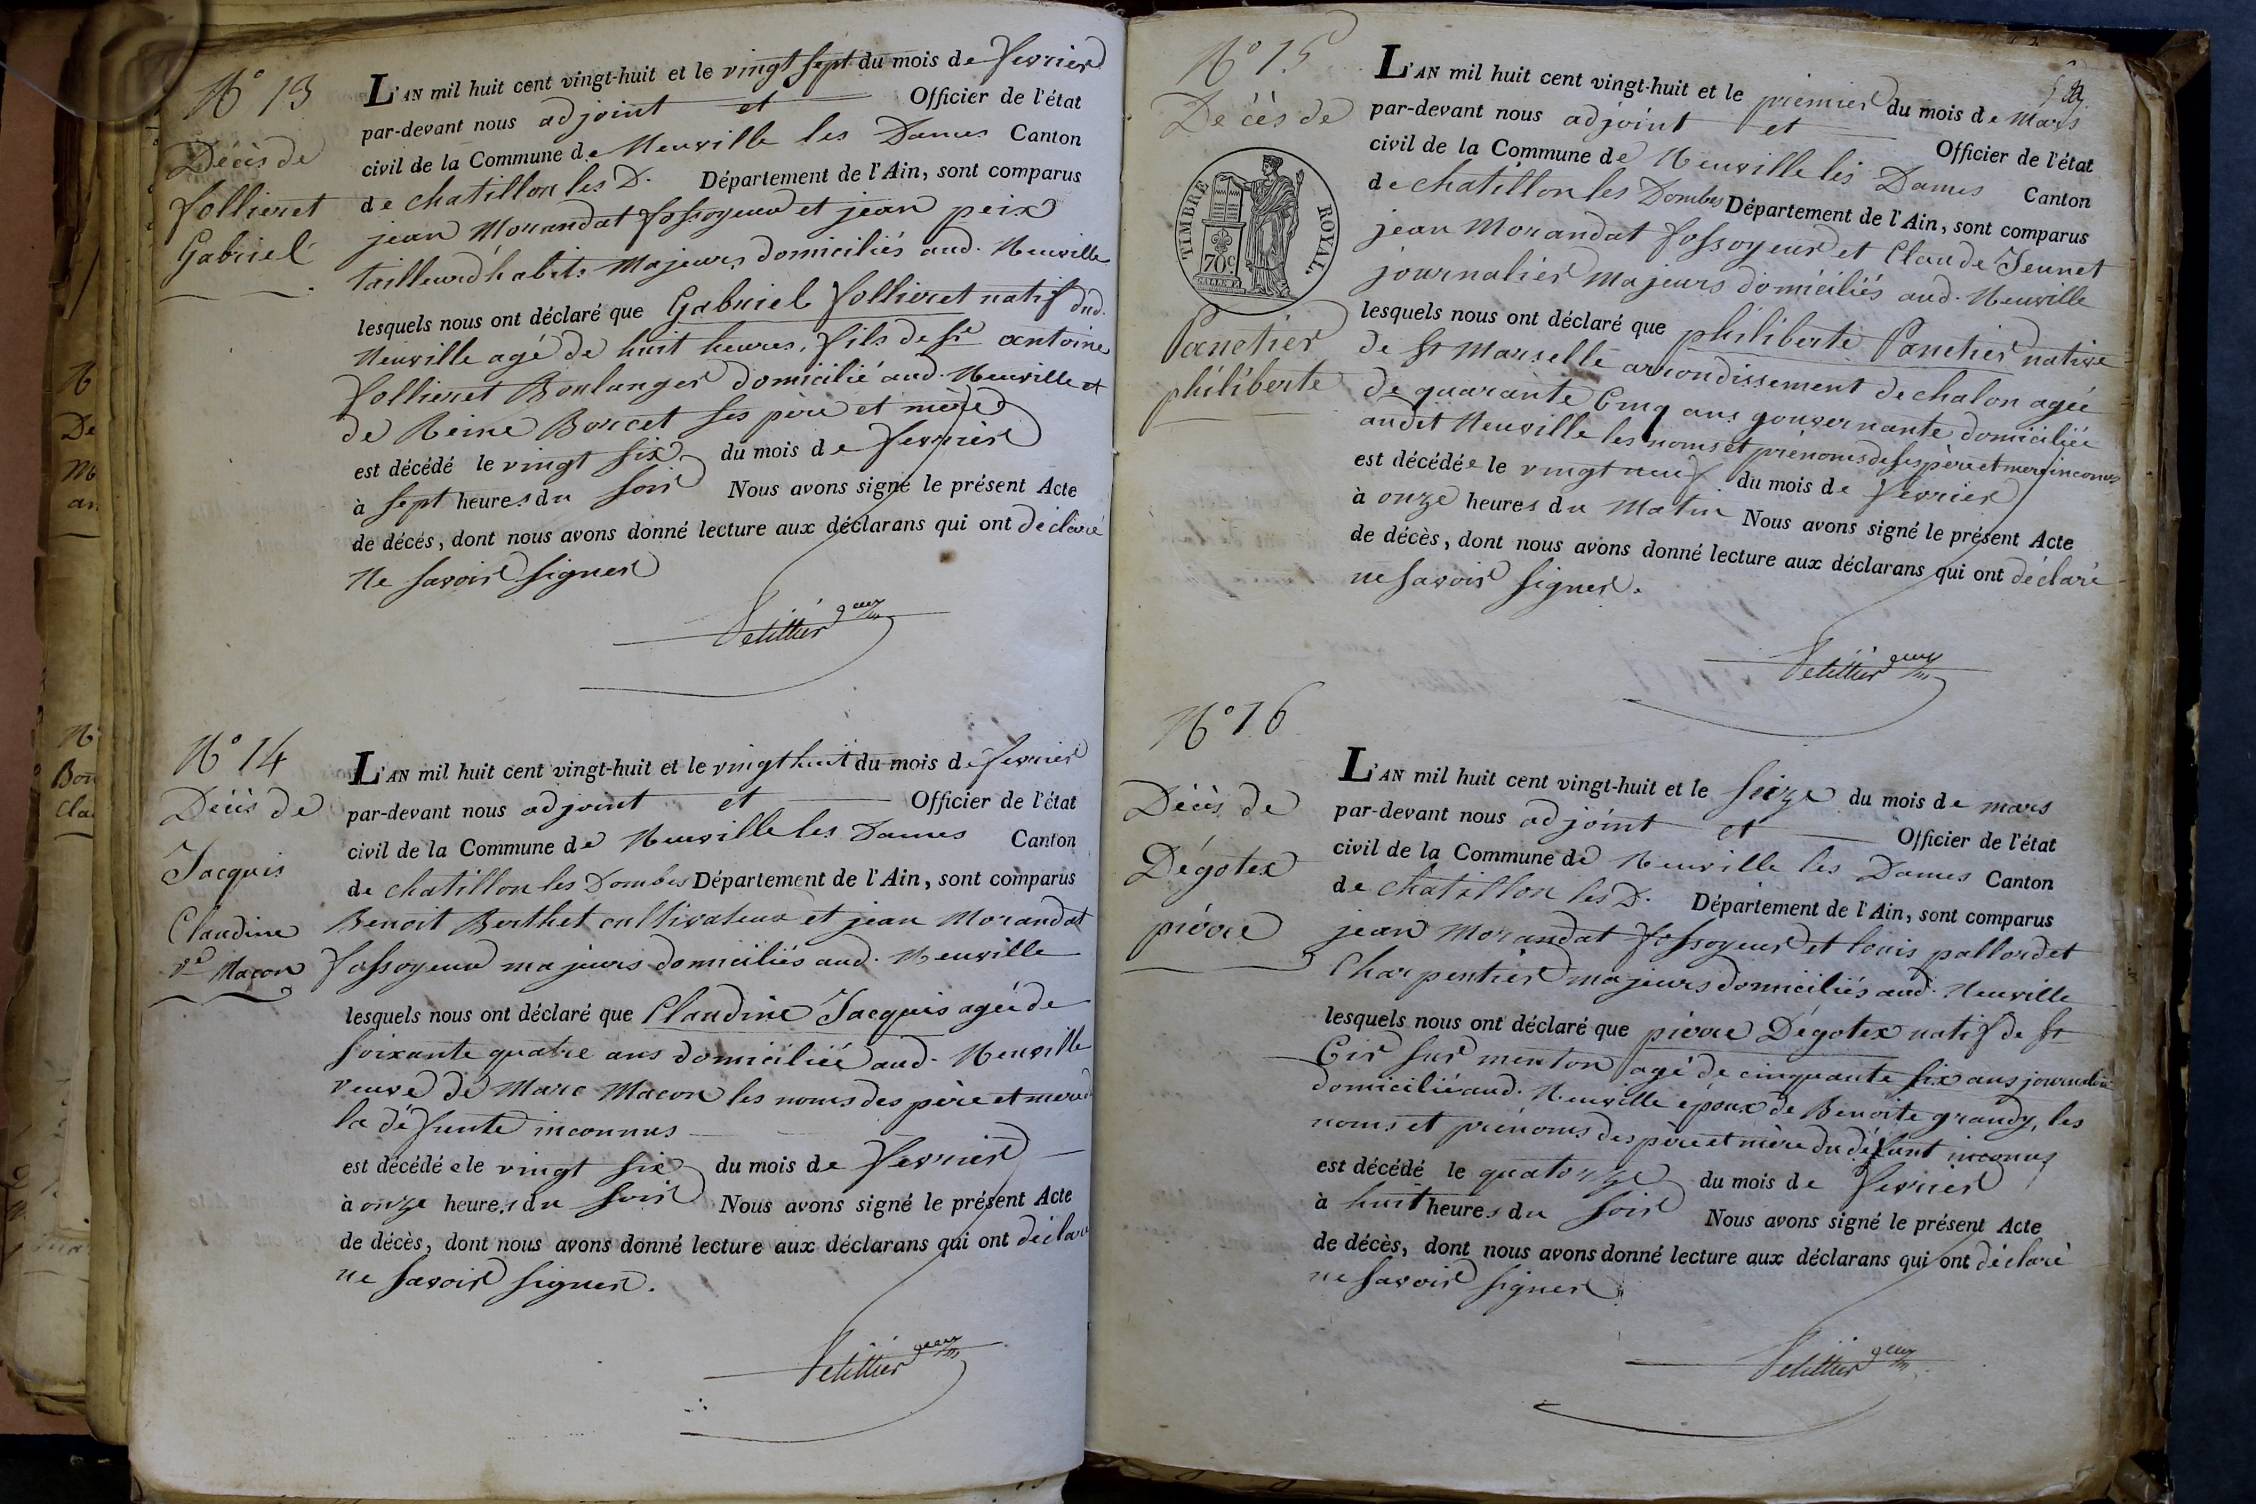 N° 13
Décès de
follieret
Gabriel
L'AN mil huit cent vingt-huit et le vingt sept du mois de fevrier
par-devant nous adjoint et Officier de l'état
civil de la Commune de Neuville les Dames Canton
de chatillon les D. Département de l'Ain, sont comparus
jean Morandat fossoyeur et jean peix
tailleur d'habits Majeurs domiciliés aud. Neuville
lesquels nous ont déclaré que Gabriel follieret natif dud.
Neuville agé de huit heures, fils de Sr antoine
follieret Boulanger domicilié aud. Neuville et
de Reine Borcet ses père et mère
est décédé le vingt six du mois de fevrier
à sept heures du soir Nous avons signé le présent Acte
de décès, dont nous avons donné lecture aux déclarans qui ont déclaré
Ne savoir signer
Petittier
N° 14
Décès de
Jacquis
Claudine
ve Macon
L'AN mil huit cent vingt-huit et le vingt huit du mois de fevrier
par-devant nous adjoint et Officier de l'état
civil de la Commune de Neuville les Dames Canton
de chatillon les Dombes Département de l'Ain, sont comparus
Benoit Berthet cultivateur et jean Morandat
fossoyeur majeurs domiciliés aud. Neuville
lesquels nous ont déclaré que Claudine Jacquis agée de
soixante quatre ans domiciliée aud. Neuville
veuve de Marc Macon les noms des père et mère d
la défunte inconnus
est décédée le vingt six du mois de fevrier
à onze heures du soir Nous avons signé le présent Acte
de décès, dont nous avons donné lecture aux déclarans qui ont déclaré
ne savoir signer.
Petittier
N° 15
Décès de
TIMBRE ROYAL
70c
Panetier
philiberte
L'AN mil huit cent vingt-huit et le premier du mois de Mars
par-devant nous adjoint et Officier de l'état
civil de la Commune de Neuville les Dames Canton
de chatillon les Dombes Département de l'Ain, sont comparus
jean Morandat fossoyeur et Claude Jeunet
journalier Majeurs domiciliés aud. Neuville
lesquels nous ont déclaré que philiberte Panetier native
de St Marselle arrondissement de chalon agée
de quarante Cinq ans gouvernante domiciliée
audit Neuville les noms et prénoms de ses père et mère inconnus
est décédée le vingt neuf du mois de fevrier
à onze heures du Matin Nous avons signé le présent Acte
de décès, dont nous avons donné lecture aux déclarans qui ont déclaré
ne savoir signer.
Petittier
N° 16
Décès de
Dégotex
pierre
L'AN mil huit cent vingt-huit et le seize du mois de mars
par-devant nous adjoint et Officier de l'état
civil de la Commune de Neuville les Dames Canton
de chatillon les D. Département de l'Ain, sont comparus
jean Morandat fossoyeur et louis pallordet
Charpentier majeurs domiciliés aud. Neuville
lesquels nous ont déclaré que pierre Dégotex natif de St
Cir sur menton agé de cinquante six ans journalier
domicilié aud. Neuville époux de Benoite grandy, les
noms et prénoms des père et mère du défunt inconnus
est décédé le quatorze du mois de fevrier
à huit heures du soir Nous avons signé le présent Acte
de décès, dont nous avons donné lecture aux déclarans qui ont déclaré
ne savoir signer
Petittier